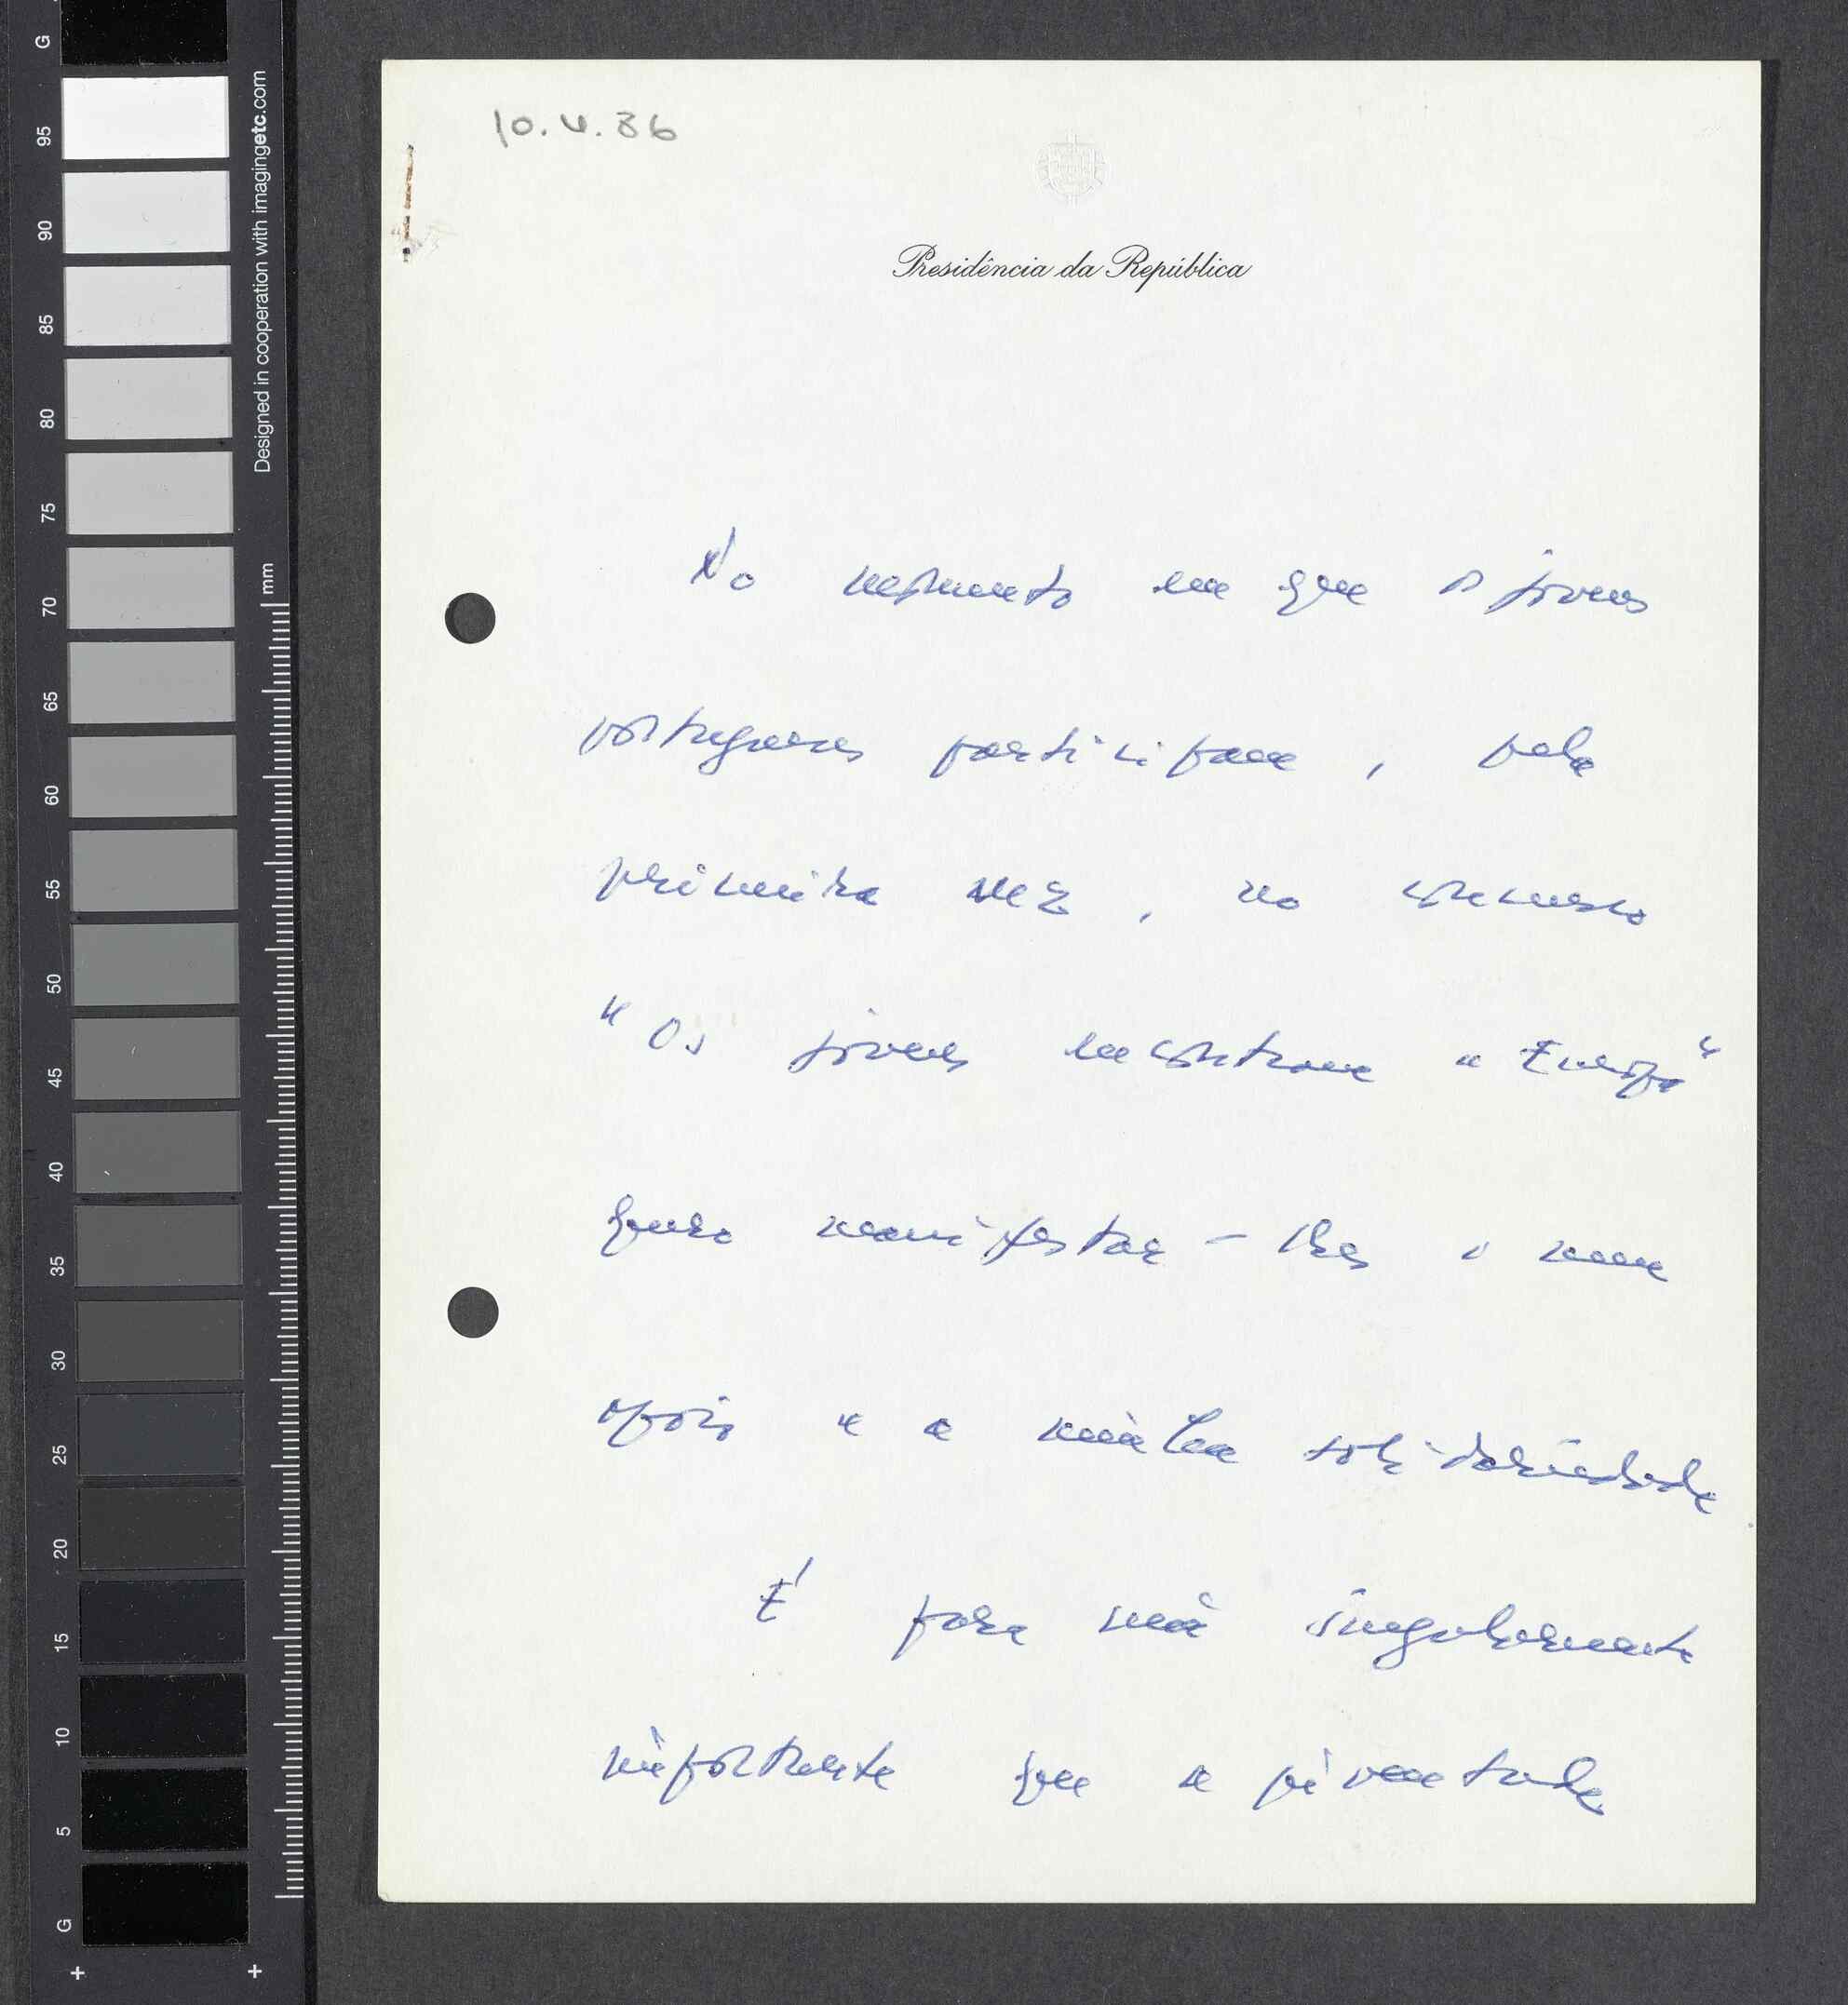 10.4.86
Presidência da República
No momento em que os jovens
portugueses participam, pela
primeira vez, no concurso
"Os jovens encontram a Europa"
quero manifestar-lhes o meu
apoio e a minha solidariedade
É para mim singularmente
importante que a juventude
G
95
90
85
80
75
70
65
60
55
50
45
40
35
30
25
20
15
10
5
G
Designed in cooperation with imagingetc.com
mm